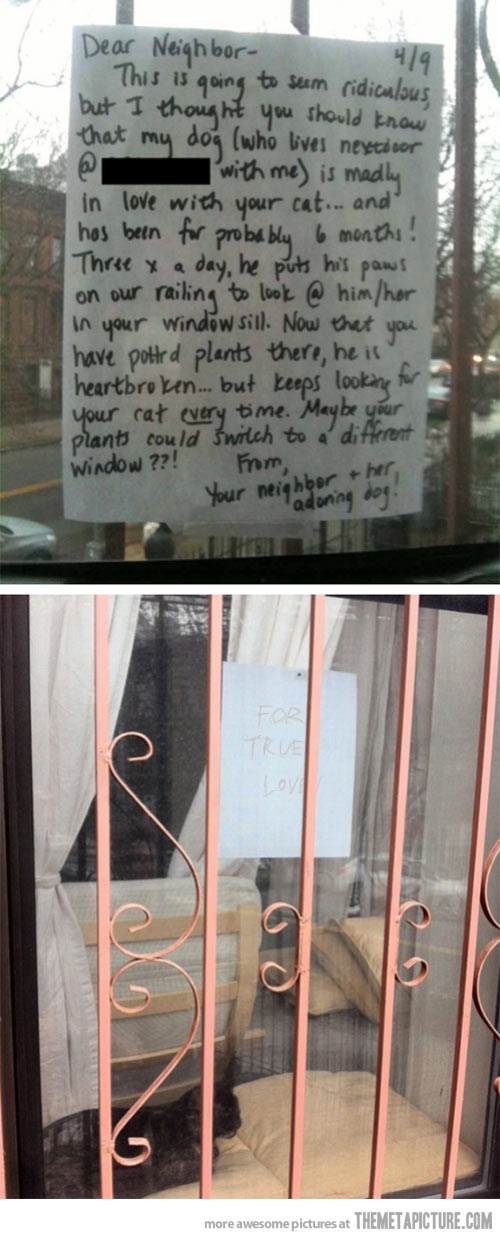 Dear Neighbor-
4/9
This is going to seem ridiculous,
but I thought you should know
that my dog (who lives nextdoor
@ with me) is madly
in love with your cat... and
has been for probably 6 months!
Three x a day, he puts his paws
on our railing to look @ him/her
in your windowsill. Now that you
have pottrd plants there, he is
heartbroken... but keeps looking for
your cat every time. Maybe your
plants could switch to a different
window??!
From,
your neighbor + her
adoring dog!
FOR
TRUE
LOVE
more awesome pictures at THEMETAPICTURE.COM